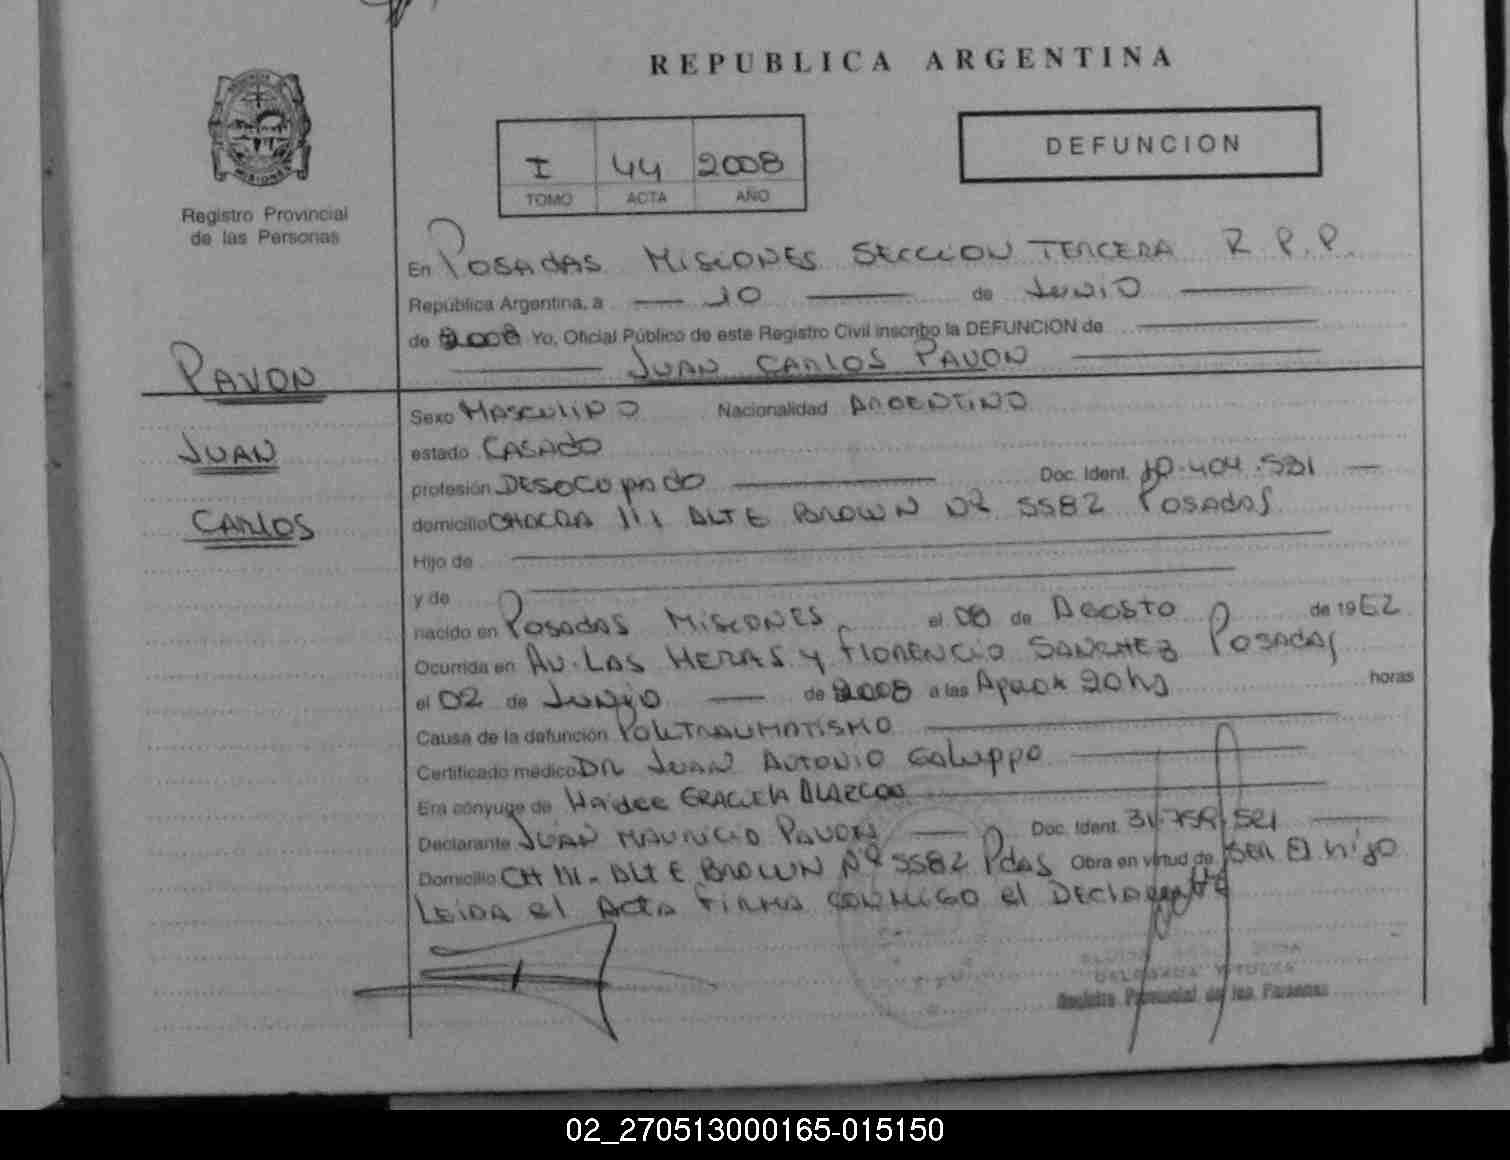 REPUBLICA ARGENTINA
MISIONES
Registro Provincial
de las Personas
I 44 2008
TOMO ACTA AÑO
DEFUNCION
En POSADAS MISIONES SECCION TERCERA R.P.P.
República Argentina, a 10 de Junio
de 2008 Yo, Oficial Público de este Registro Civil inscribo la DEFUNCION de
JUAN CARLOS PAVON
PAVON
JUAN
CARLOS
Sexo MASCULINO Nacionalidad ARGENTINO
estado CASADO
profesión DESOCUPADO Doc. Ident.
domicilio CHACRA 111 ALTE BROWN Nº 5582 POSADAS
Hijo de
y de
nacido en POSADAS MISIONES el 08 de AGOSTO de 19
Ocurrida en AV. LAS HERAS Y FLORENCIO SANCHEZ POSADAS
el 02 de JUNIO de 2008 a las Aprox 20 hs horas
Causa de la defunción POLITRAUMATISMO
Certificado médico DR JUAN ANTONIO Galuppo
Era cónyuge de Haidee GRACIELA ALARCON
Declarante JUAN MAURICIO PAVON Doc. Ident. 31.759.521
Domicilio CH 111 - ALTE BROWN Nº 5582 Pdas Obra en virtud de SER El hijo
LEIDA el ACTA FIRMA CONMIGO el DECLARANTE
Registro Provincial de las Personas
02_270513000165-015150